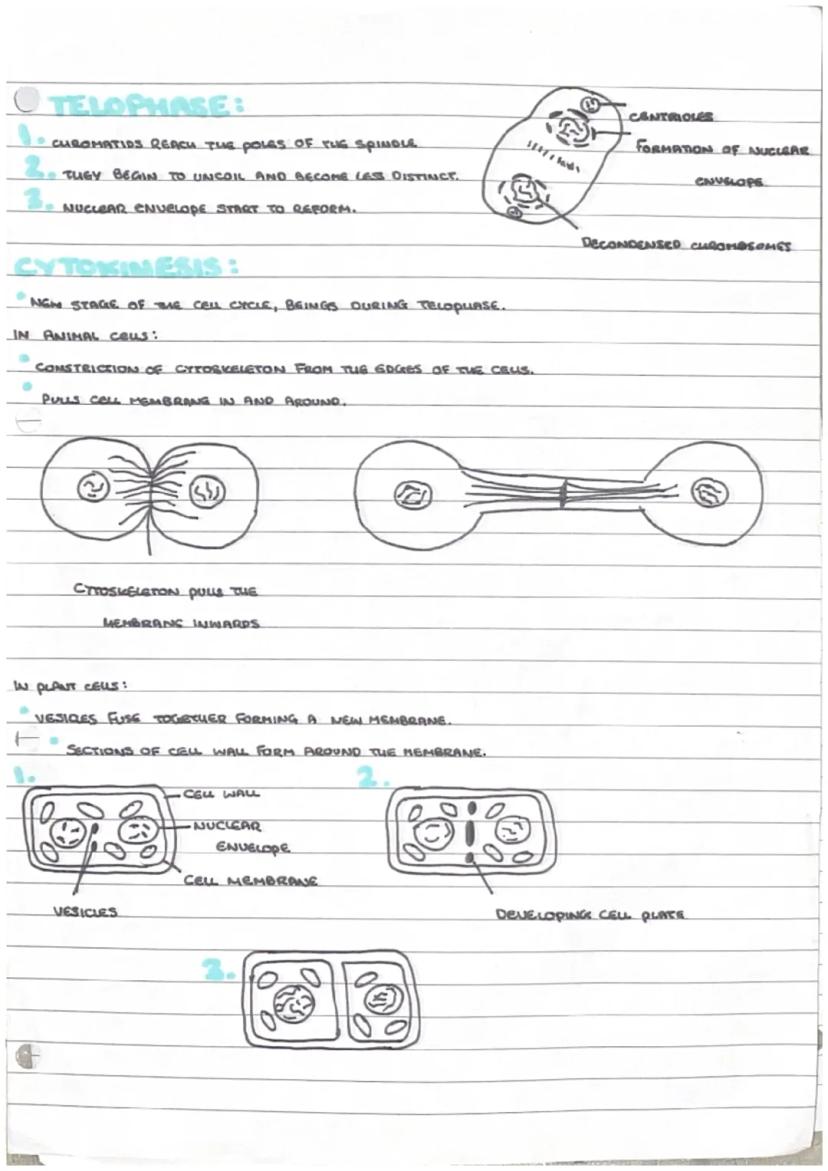 TELOPHASE:
1. CHROMATIDS REACH THE POLES OF THE SPINDLE
2. THEY BEGIN TO UNCOIL AND BECOME LESS DISTINCT.
3. NUCLEAR ENVELOPE START TO REFORM.
CENTRIOLES
FORMATION OF NUCLEAR
ENVELOPE
DECONDENSED CHROMOSOMES
CYTOKINESIS:
• NEW STAGE OF THE CELL CYCLE, BEINGS DURING TELOPHASE.
IN ANIMAL CELLS:
• CONSTRICTION OF CYTOSKELETON FROM THE EDGES OF THE CELLS.
• PULLS CELL MEMBRANE IN AND AROUND.
CYTOSKELETON PULLS THE
MEMBRANE INWARDS
IN PLANT CELLS:
• VESICLES FUSE TOGETHER FORMING A NEW MEMBRANE.
• SECTIONS OF CELL WALL FORM AROUND THE MEMBRANE.
1.
CELL WALL
NUCLEAR
ENVELOPE
CELL MEMBRANE
VESICLES
2.
DEVELOPING CELL PLATE
3.